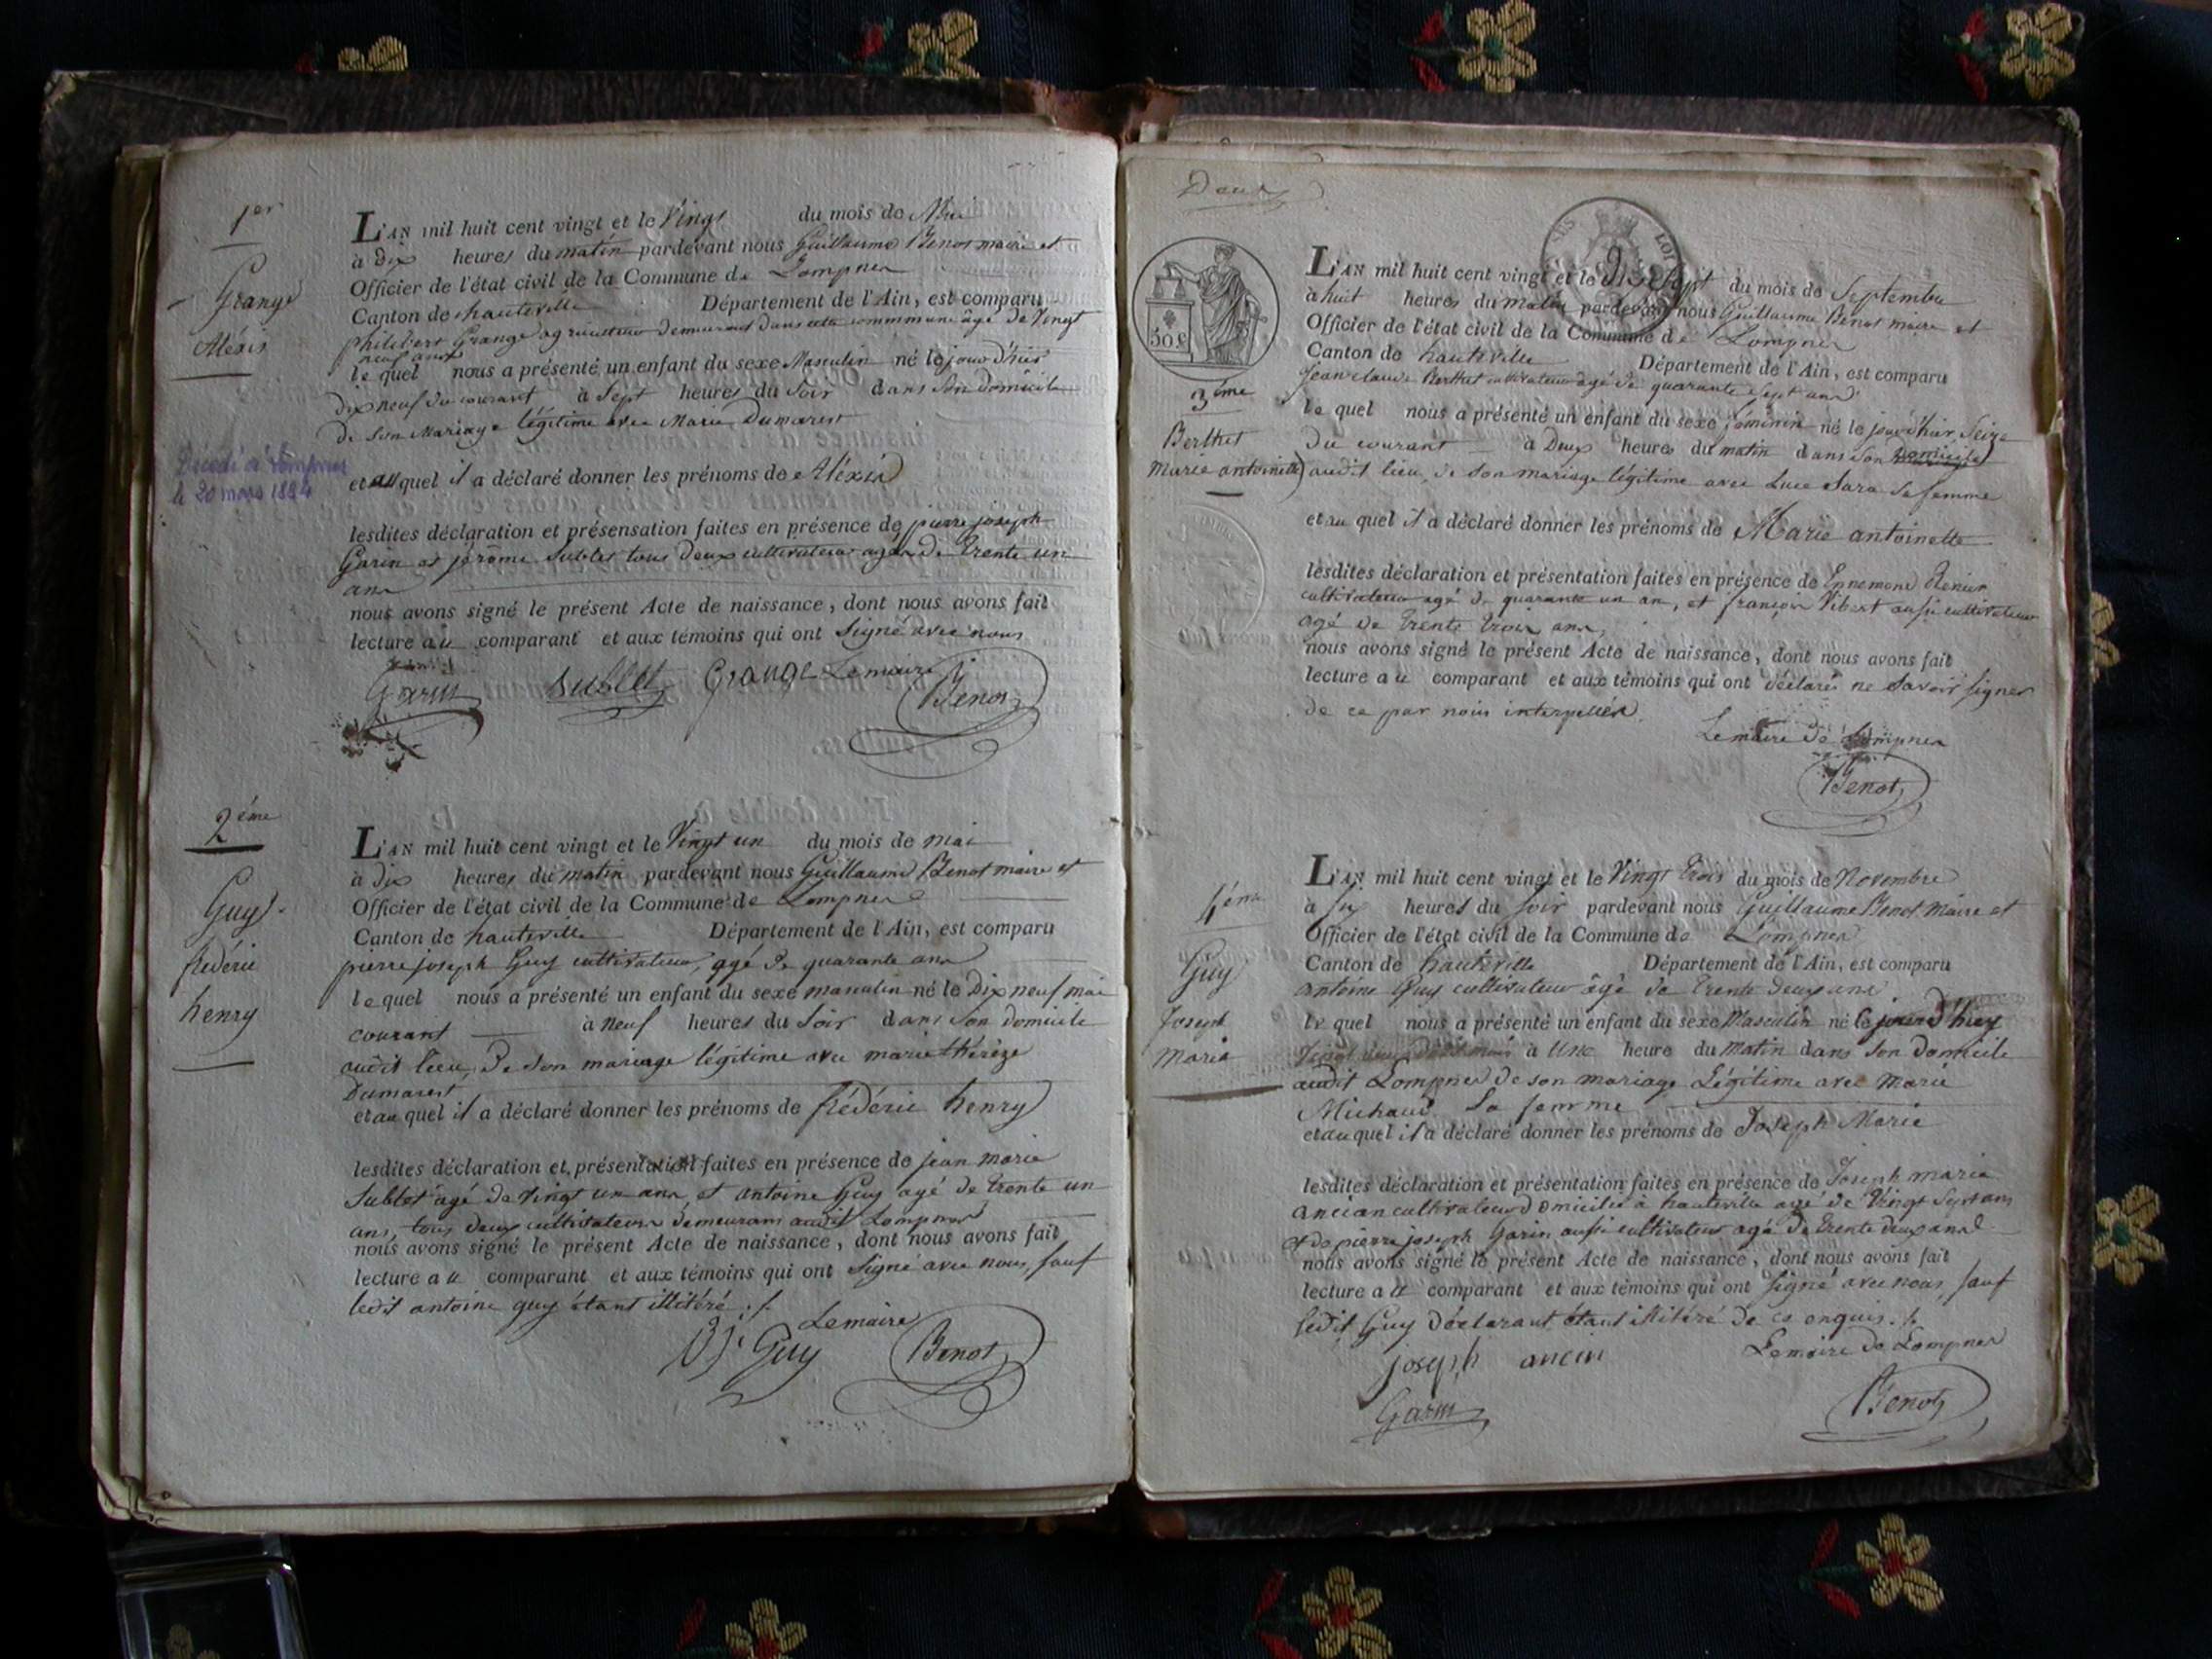 1er
Grange
Aléxis
Décédé à Lompnes
le 20 mars 1894
L'AN mil huit cent vingt et le Vingt du mois de Mai
à dix heures du matin pardevant nous Guillaume Benot maire et
Officier de l'état civil de la Commune de Lompnes
Canton de hauteville Département de l'Ain, est comparu
philibert Grange agriculteur demeurant dans cette commmune âgé de Vingt
neuf ans
le quel nous a présenté un enfant du sexe Masculin né le jour d'hier
dix neuf du courant à Sept heures du Soir dans Son domicile
de Son Mariage légitime avec Marie Dumarest
et au quel il a déclaré donner les prénoms de Aléxis
lesdites déclaration et présensation faites en présence de pierre joseph
Garin et jérôme Sublet tous deux cultivateurs agés de trente un
ans
nous avons signé le présent Acte de naissance, dont nous avons fait
lecture au comparant et aux témoins qui ont Signé avec nous
Garin Sublet Grange Lemaire
Benot
2éme
Guy
frédéric
henry
L'AN mil huit cent vingt et le Vingt un du mois de mai
à dix heures du matin pardevant nous Guillaume Benot maire et
Officier de l'état civil de la Commune de Lompnes
Canton de hauteville Département de l'Ain, est comparu
pierre joseph Guy cultivateur, agé de quarante ans
le quel nous a présenté un enfant du sexe masculin né le Dix neuf mai
courant à neuf heures du Soir dans Son domicile
audit lieu, de Son mariage légitime avec marie thérèze
Dumarest
et au quel il a déclaré donner les prénoms de frédéric henry
lesdites déclaration et présentation faites en présence de jean marie
Sublet agé de Vingt un ans, et antoine Guy agé de trente un
ans, tous deux cultivateurs demeurans audit Lompnes
nous avons signé le présent Acte de naissance, dont nous avons fait
lecture au comparant et aux témoins qui ont Signé avec nous, sauf
ledit antoine guy étant illitéré ./.
Lemaire
Guy Benot
Deux
50 c
3éme
Berthet
Marie antoinette
L'AN mil huit cent vingt et le dix Sept du mois de Septembre
à huit heures du Matin pardevant nous Guillaume Benot maire et
Officier de l'état civil de la Commune de Lompnes
Canton de hauteville Département de l'Ain, est comparu
Jean claude Berthet cultivateur agé de quarante Sept ans
le quel nous a présenté un enfant du sexe féminin né le jour d'hier, Seize
du courant à Deux heures du matin dans Son Domicile
audit lieu, de Son mariage légitime avec Luce Sara Sa femme
et au quel il a déclaré donner les prénoms de Marie antoinette
lesdites déclaration et présentation faites en présence de Ennemond
cultivateur agé de quarante un an, et françois Vibert aussi cultivateur
agé de trente trois ans,
nous avons signé le présent Acte de naissance, dont nous avons fait
lecture au comparant et aux témoins qui ont déclarés ne Savoir signer
de ce par nous interpellés.
Le maire de Lompnes
Benot
4éme
Guy
Joseph
Marie
L'AN mil huit cent vingt et le Vingt trois du mois de Novembre
à six heures du soir pardevant nous Guillaume Benot Maire et
Officier de l'état civil de la Commune de Lompnes
Canton de hauteville Département de l'Ain, est comparu
antoine Guy cultivateur âgé de trente deux ans
le quel nous a présenté un enfant du sexe Masculin né le jour d'hier
Vingt deux à Une heure du Matin dans Son domicile
audit Lompnes de son mariage Légitime avec Marie
Michaud Sa femme
et au quel il a déclaré donner les prénoms de Joseph Marie
lesdites déclaration et présentation faites en présence de Joseph marie
ancian cultivateur domicilié à hauteville agé de Vingt Sept ans
et de pierre joseph Garin aussi cultivateur agé de trente deux ans
nous avons signé le présent Acte de naissance, dont nous avons fait
lecture au comparant et aux témoins qui ont signé avec nous, sauf
ledit Guy déclarant étant illitéré de ce enquis ./.
joseph ancian Lemaire de Lompnes
Garin Benot